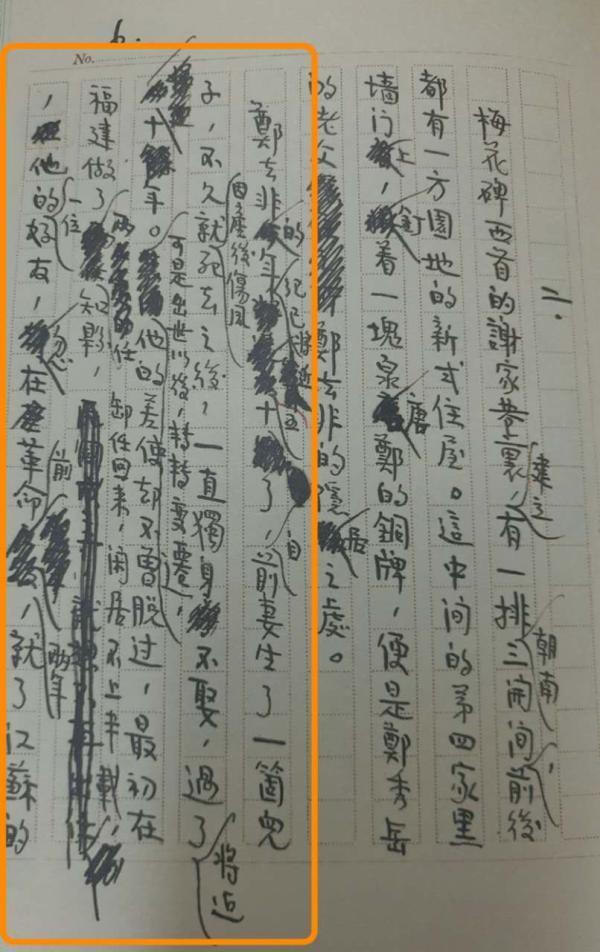 No.
二、
梅花碑西首的謝家巷裏，建立有一排朝南三開間，前後
都有一方園地的新式住屋。這中间的第四家黑
墻门上，釘着一塊泉唐鄭的銅牌，便是鄭秀岳
的老父鄭去非的隱居之處。
鄭去非的年紀已將近五十了，自前妻生了一箇兒
子，不久就因產後傷風死去之後，一直獨身不娶，過了將近
十年。可是出世以後，轉轉變遷，他的差使却不曾脫过，最初在
福建做了兩任知縣，卸任回来，闲居不上半載，
，他的一位好友，忽在革命前兩年，就了江蘇的